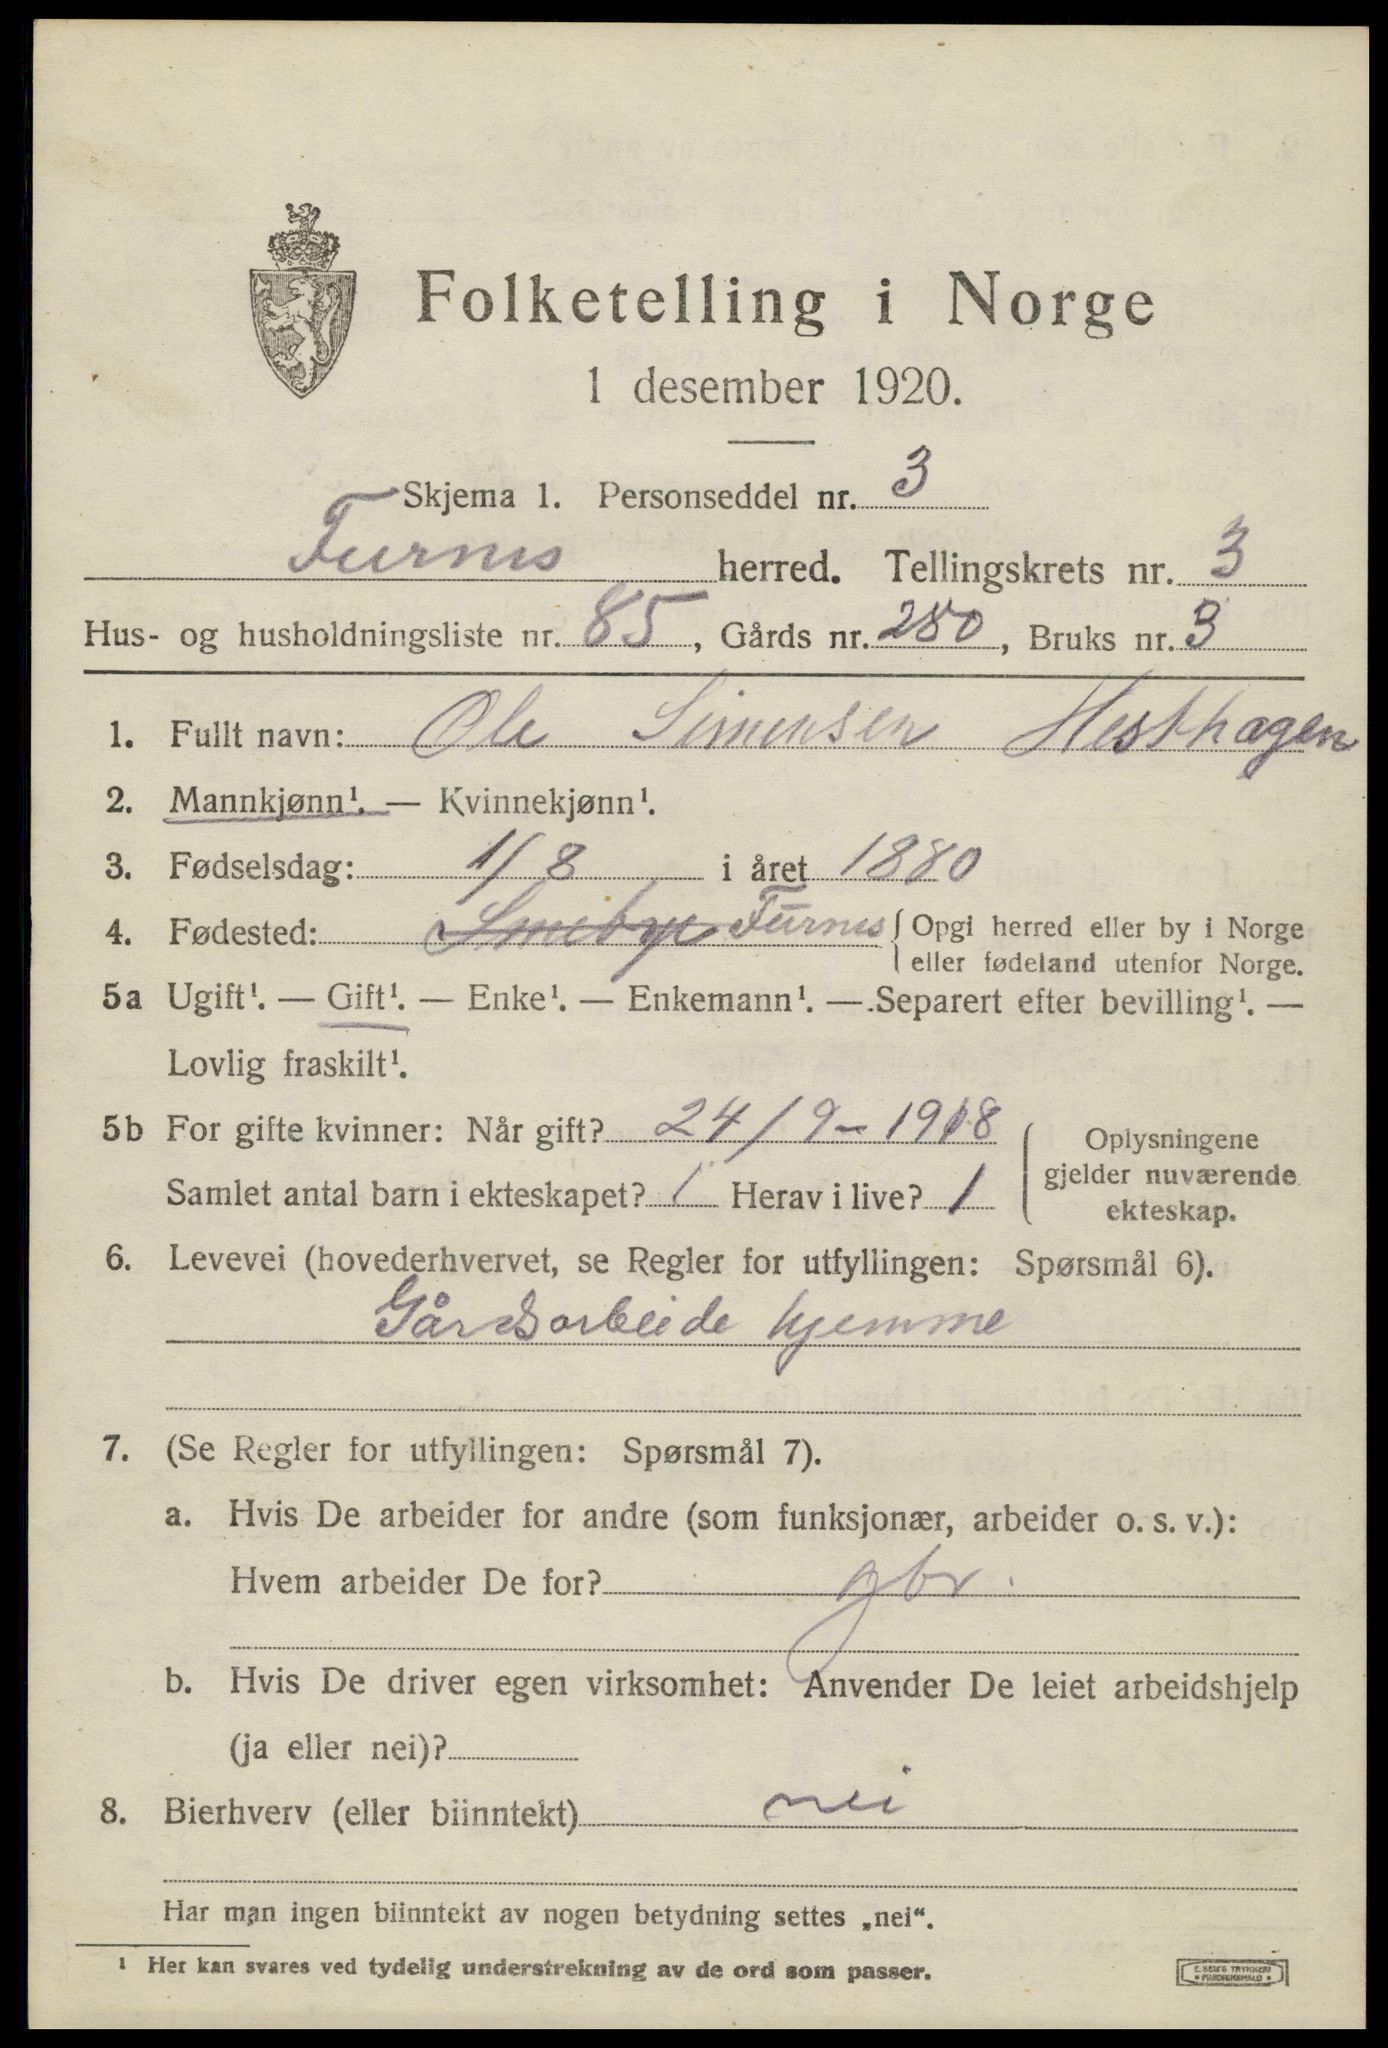 Folketelling i Norge
1 desember 1920.
Skjema 1. Personseddel nr. 3
Furnes herred. Tellingskrets nr. 3
Hus- og husholdningsliste nr. 85, Gårds nr. 280, Bruks nr. 3
1. Fullt navn: Ole Simensen Hesthagen
2. Mannkjønn¹. — Kvinnekjønn¹.
3. Fødselsdag: 1/8 i året 1880
4. Fødested: Smebye Furnes { Opgi herred eller by i Norge
eller fødeland utenfor Norge.
5a Ugift¹. — Gift¹. — Enke¹. — Enkemann¹. — Separert efter bevilling¹. —
Lovlig fraskilt¹.
5b For gifte kvinner: Når gift? 24/9 - 1918
Samlet antal barn i ekteskapet? 1 Herav i live? 1
{ Oplysningene
gjelder nuværende
ekteskap.
6. Levevei (hovederhvervet, se Regler for utfyllingen: Spørsmål 6).
Gårdsarbeide hjemme
7. (Se Regler for utfyllingen: Spørsmål 7).
a. Hvis De arbeider for andre (som funksjonær, arbeider o. s. v.):
Hvem arbeider De for? gbr.
b. Hvis De driver egen virksomhet: Anvender De leiet arbeidshjelp
(ja eller nei)?
8. Bierhverv (eller biinntekt) nei
Har man ingen biinntekt av nogen betydning settes „nei“.
¹ Her kan svares ved tydelig understrekning av de ord som passer.
E. SEM'S TRYKKERI
• FREDRIKSHALD •